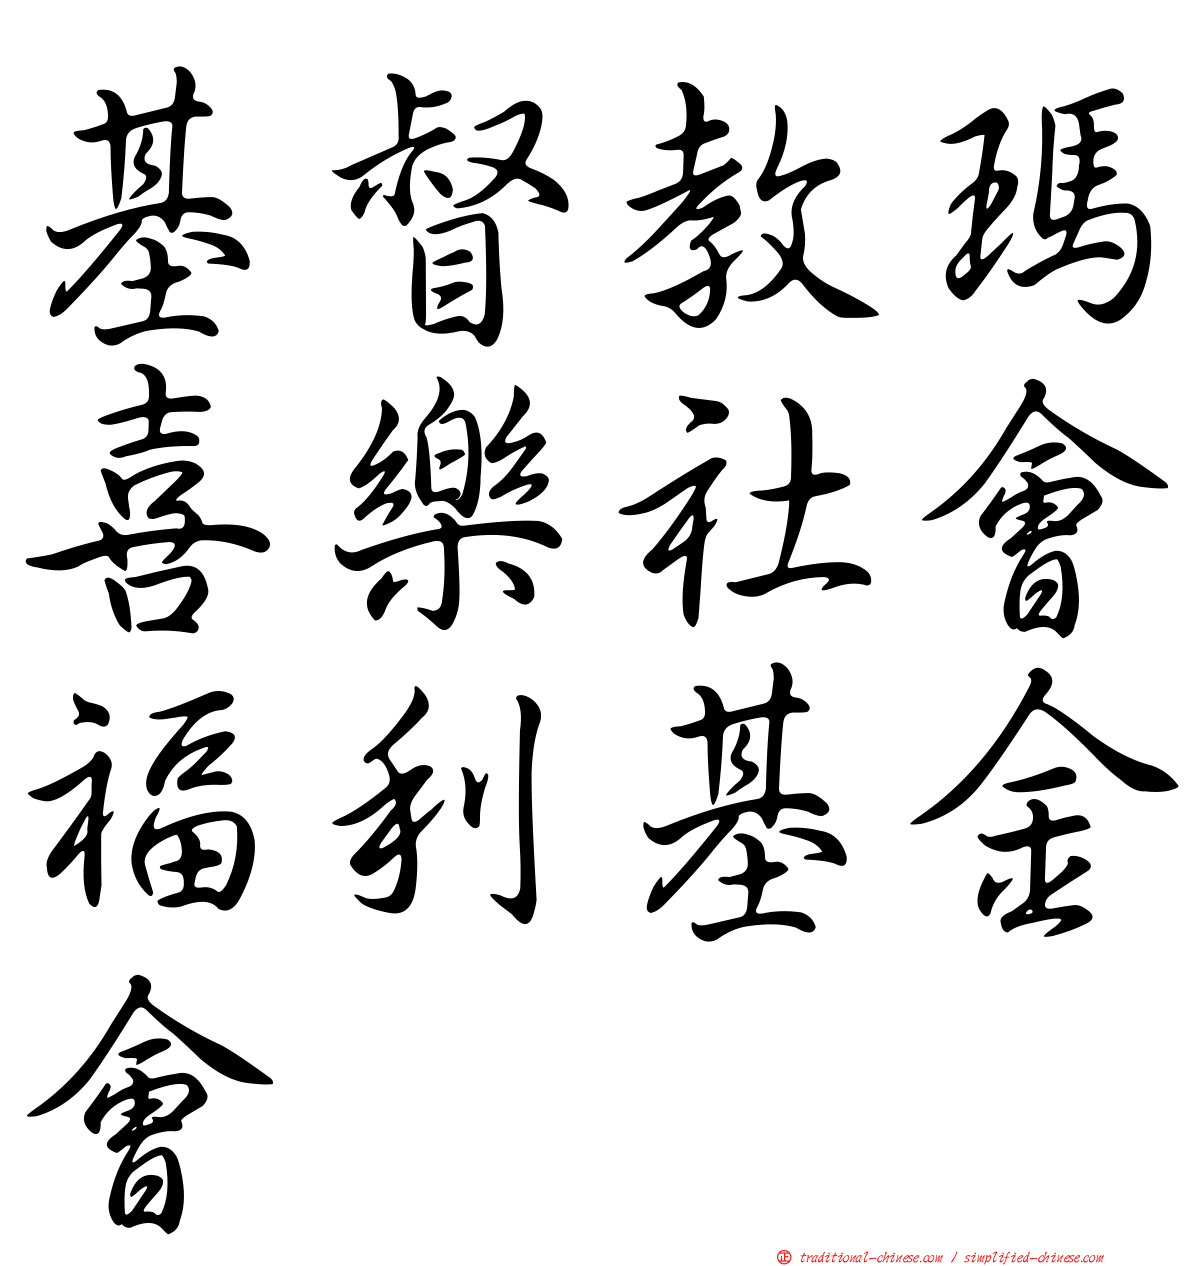 基督教瑪
喜樂社會
福利基金
會
正 traditional-chinese.com / simplified-chinese.com